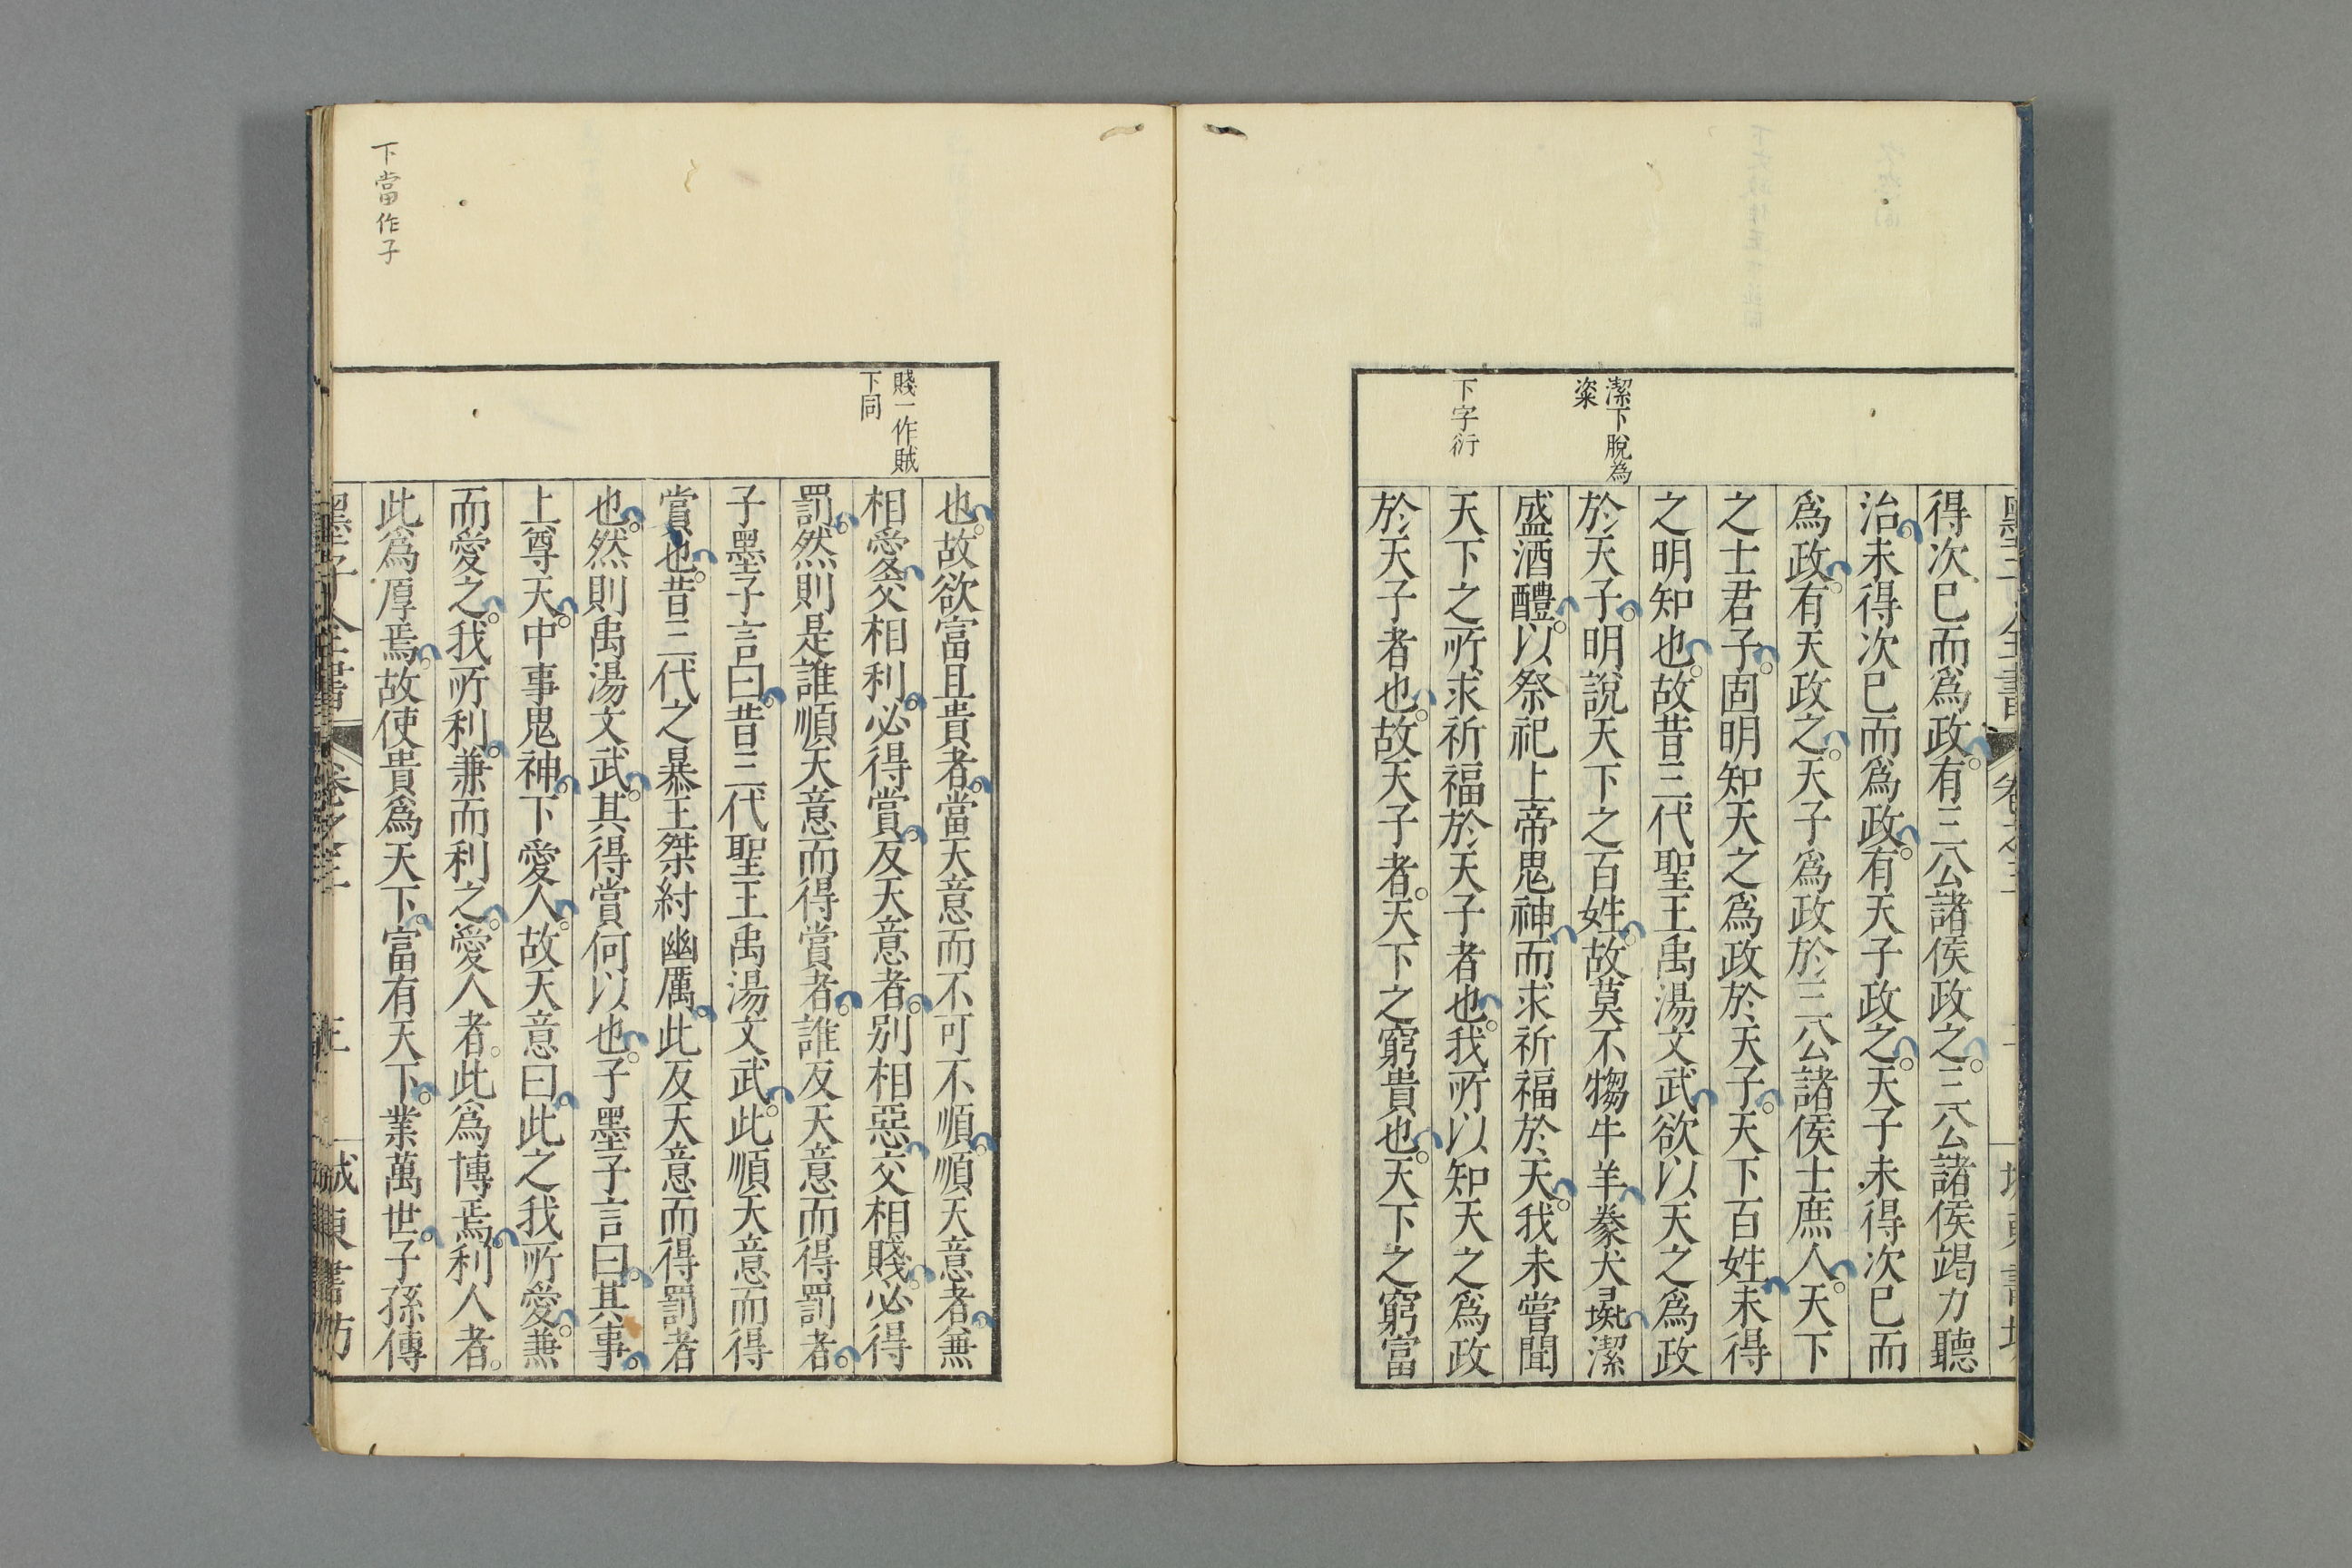 潔下脫為
粢
下字衍
得次已而爲政。有三公諸侯政之。三公諸侯竭力聽
治未得次已而爲政。有天子政之。天子未得次已而
爲政。有天政之。天子爲政於三公諸侯士庶人。天下
之士君子。固明知天之爲政於天子。天下百姓未得
之明知也。故昔三代聖王禹湯文武欲以天之爲政
於天子。明說天下之百姓。故莫不犓牛羊豢犬彘潔
盛酒醴。以祭祀上帝鬼神而求祈福於天。我未嘗聞
天下之所求祈福於天子者也。我所以知天之爲政
於天子者也。故天子者。天下之窮貴也。天下之窮富
下當作子
賤一作賊
下同
也。故欲富且貴者。當天意而不可不順。順天意者。兼
相愛交相利。必得賞。反天意者。別相惡交相賤。必得
罰。然則是誰順天意而得賞者。誰反天意而得罰者。
子墨子言曰。昔三代聖王禹湯文武。此順天意而得
賞也。昔三代之暴王桀紂幽厲。此反天意而得罰者
也。然則禹湯文武。其得賞何以也。子墨子言曰。其事。
上尊天。中事鬼神。下愛人。故天意曰。此之我所愛。兼
而愛之。我所利。兼而利之。愛人者。此爲博焉。利人者。
此爲厚焉。故使貴爲天下。富有天下。業萬世。子孫傳
墨子全書 卷之三